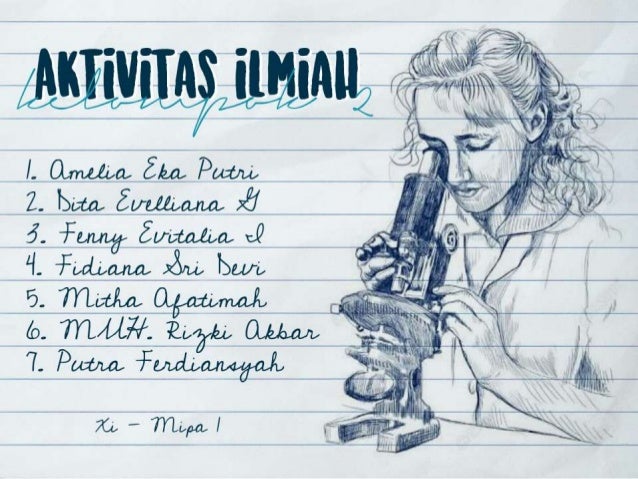 AKTiViTAS iLMiAH
kelompok 2
1. Amelia Eka Putri
2. Dita Evelliana G
3. Fenny Evitalia I
4. Fidiana Sri Devi
5. Mitha Afatimah
6. MUH. Rizki Akbar
7. Putra Ferdiansyah
Xi - Mipa 1